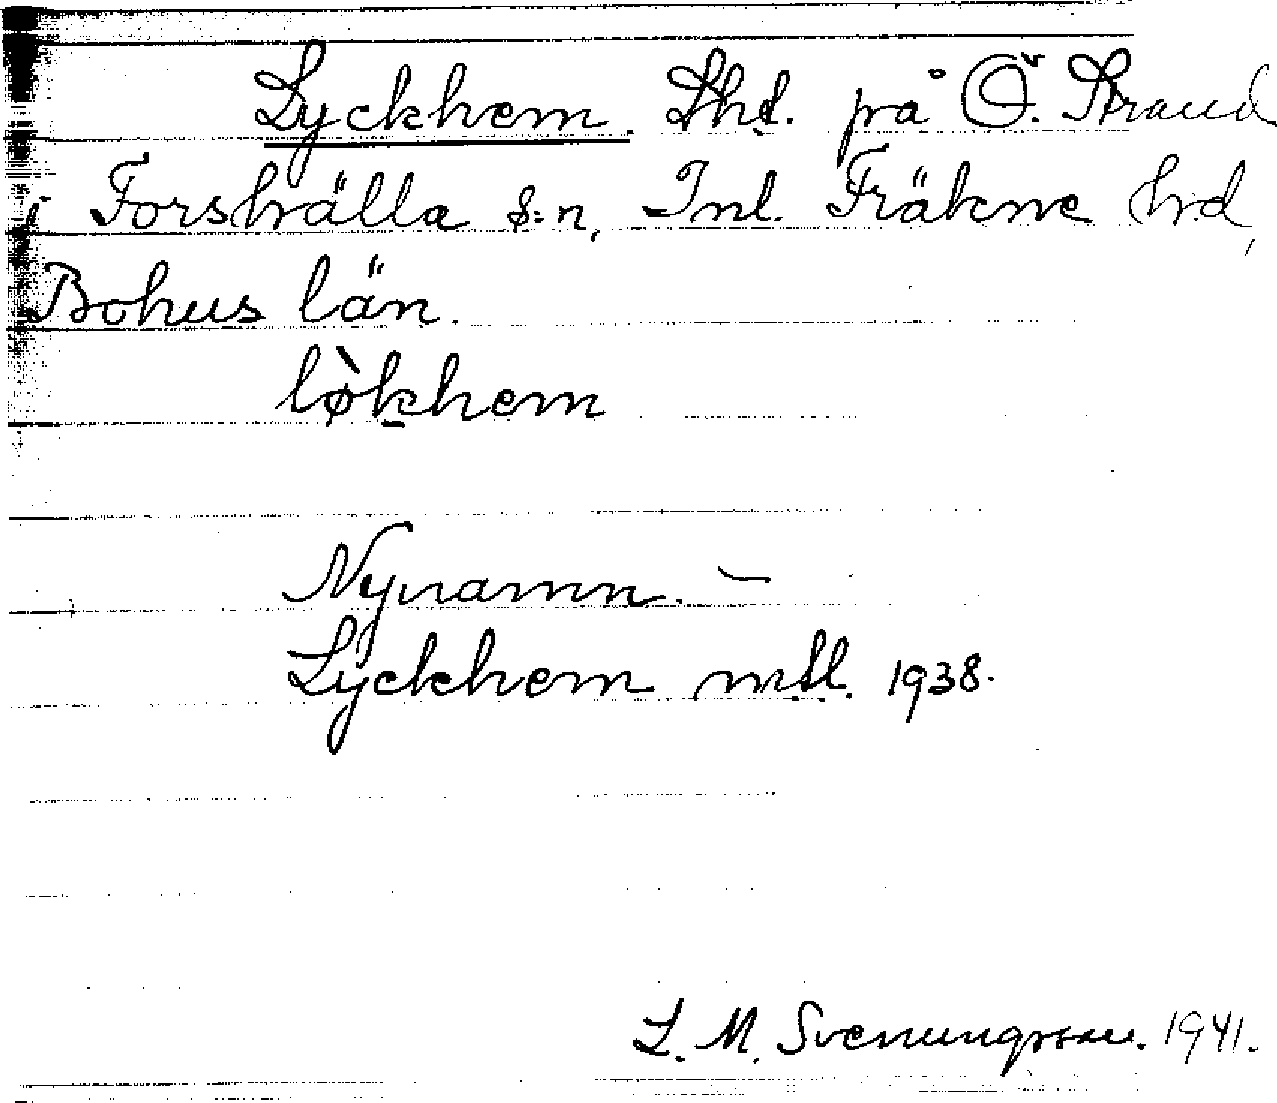 Lyckhem. Lht. på Ö. Strand
i Forshälla s:n, Inl. Fräkne hd,
Bohus län.
lø̀khem
Nynamn. —
Lyckhem mtl. 1938.
L. M. Svenungsson. 1941.